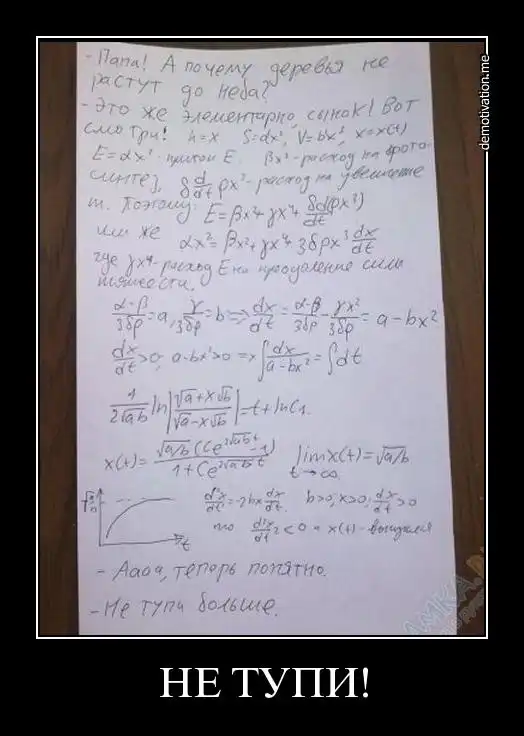 - Папа! А почему деревья не
растут до неба?
- Это же элементарно, сынок! Вот
смотри! h=x S=αx², V=bx³, x=x(t)
E=αx² - приток E. βx² - расход на фото-
синтез, δ d/dt ρx³ - расход на увеличение
m. Поэтому: E=βx²+γx⁴+δd(ρx³)/dt
или же αx²=βx²+γx⁴+3δρx³ dx/dt
где γx⁴ - расход E на преодоление силы
тяжести.
(α-β)/3δρ=a, γ/3δρ=b => dx/dt = (α-β)/3δρ - γx²/3δρ = a-bx²
dx/dt>0, a-bx²>0 => ∫dx/(a-bx²) = ∫dt
1/(2√ab) ln|(√a+x√b)/(√a-x√b)| = t+lnC₁.
x(t)= √a/b (Ce^(2√ab t) -1)/(1+Ce^(2√ab t)) lim x(t)=√a/b
t→∞
√a/b d²x/dt²=-2bx dx/dt. b>0, x>0, dx/dt>0
t то d²x/dt²<0 и x(t) - выпуклая
- Аааа, теперь понятно.
- Не тупи больше.
demotivation.me
НЕ ТУПИ!